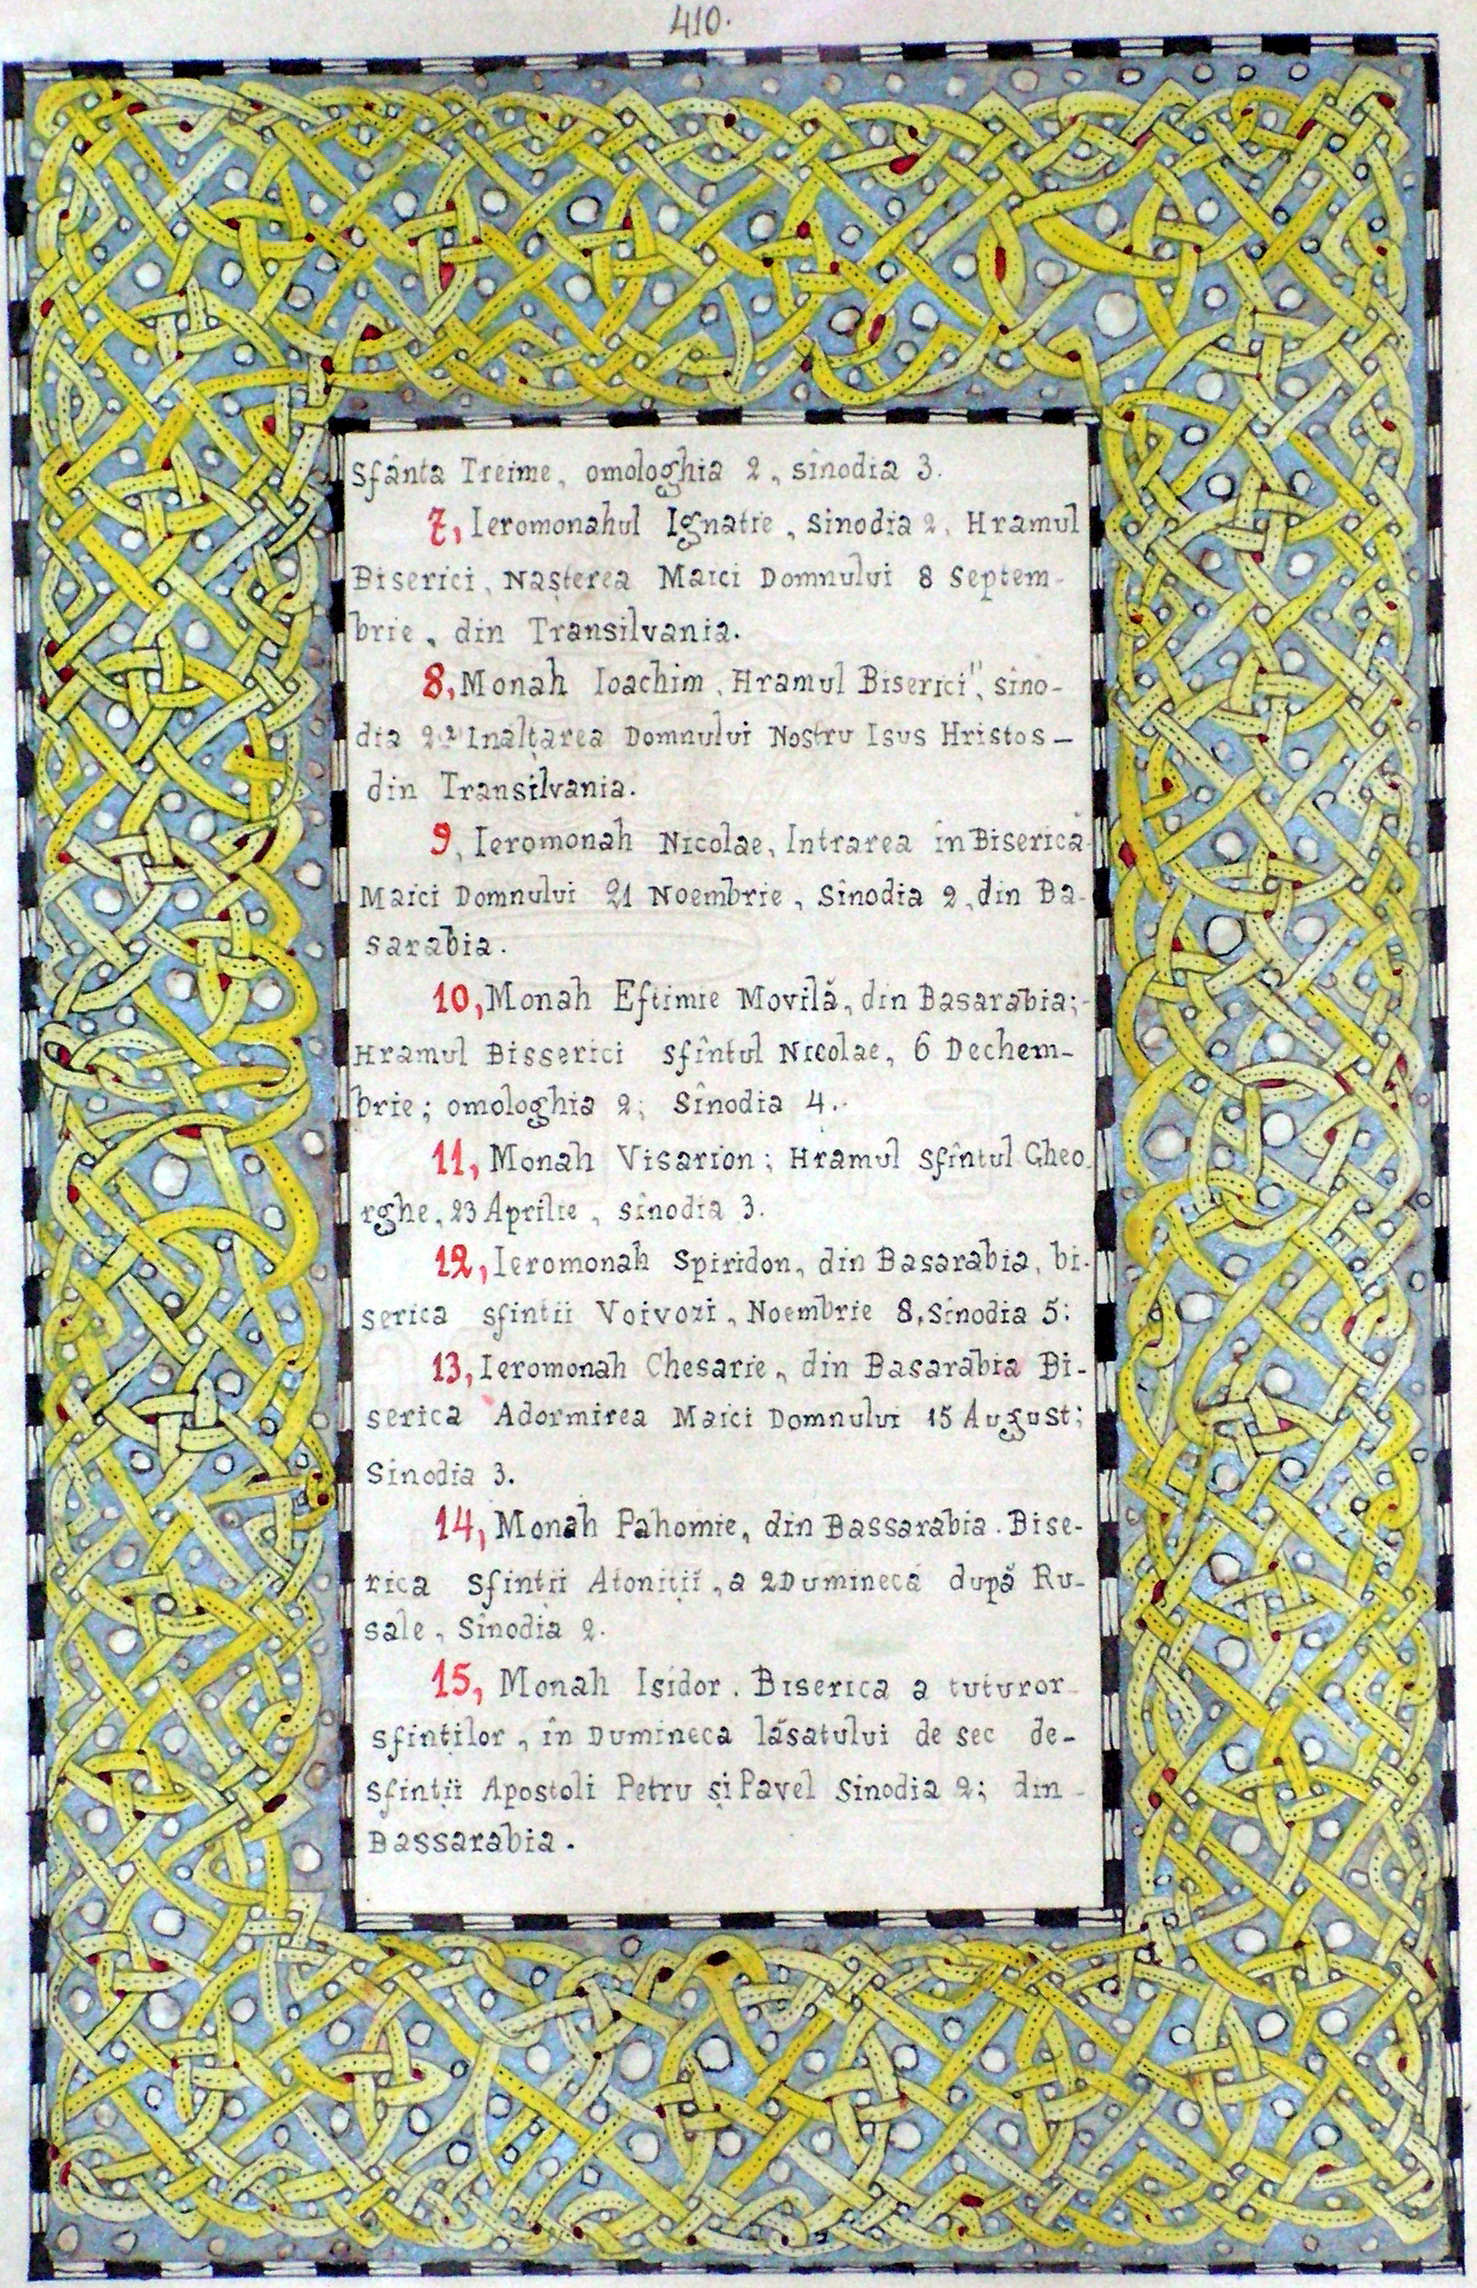 410.
Sfânta Treime, omologhia 2, sînodia 3.
7, Ieromonahul Ignatie, Sinodia 2, Hramul
Biserici, Nașterea Maici Domnului 8 Septem-
brie, din Transilvania.
8, Monah Ioachim, Hramul Biserici", sino-
dia 2 Inalțarea Domnului Nostru Isus Hristos -
din Transilvania.
9, Ieromonah Nicolae, Intrarea în Biserică
Maici Domnului 21 Noembrie, Sînodia 2, din Ba-
sarabia.
10, Monah Eftimie Movilă, din Basarabia;-
Hramul Bisserici sfîntul Nicolae, 6 Dechem-
brie; omologhia 2; Sînodia 4.
11, Monah Visarion; Hramul sfîntul Gheo-
rghe, 23 Aprilie, sînodia 3.
12, Ieromonah Spiridon, din Basarabia, bi-
serica sfintii Voivozi, Noembrie 8, Sinodia 5;
13, Ieromonah Chesarie, din Basarabia Bi-
serica Adormirea Maici Domnului 15 August;
Sinodia 3.
14, Monah Pahomie, din Bassarabia. Bise-
rica Sfintii Atoniții, a 2 Dumineca după Ru-
sale, Sînodia 2.
15, Monah Isidor. Biserica a tuturor
sfinților, în Dumineca lăsatului de sec de-
sfinții Apostoli Petru și Pavel Sinodia 2; din -
Bassarabia.